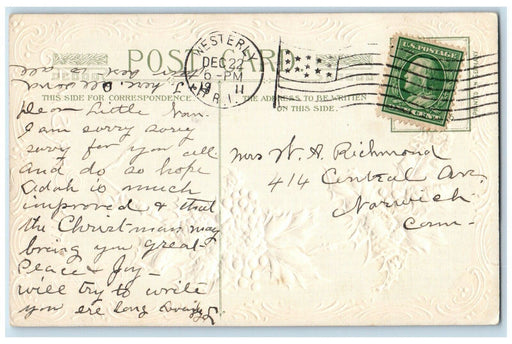 POST CARD
THIS SIDE FOR CORRESPONDENCE
THE ADDRESS TO BE WRITTEN
ON THIS SIDE.
WESTERLY
DEC 22
6-PM
19 11
R.I.
U.S. POSTAGE
Dear Little
I am sorry sorry
sorry for you all
and do so hope
Adah is much
improved & that
the Christ-man may
bring you great
Peace & Joy-
will try to write
you ere long
Mrs W. A. Richmond
414 Central Av.
Norwich
Conn-